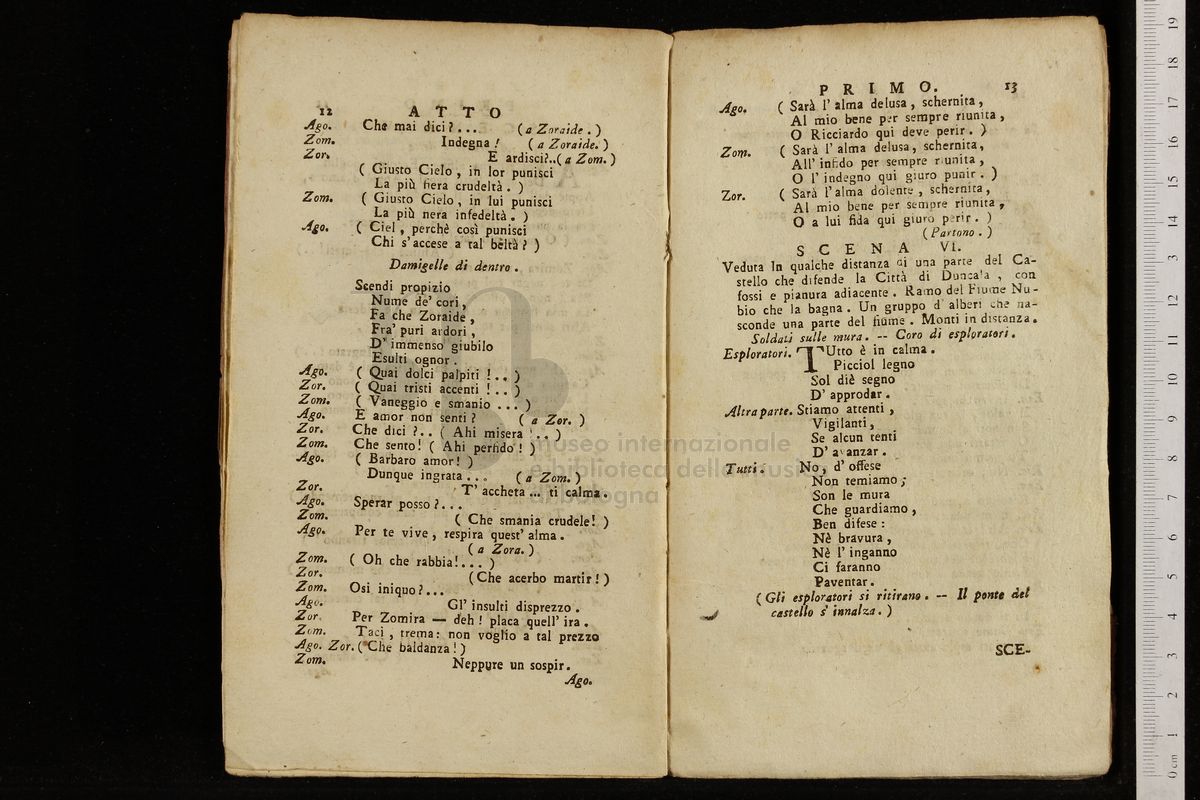 12 ATTO
Ago. Che mai dici?... (a Zoraide.)
Zom. Indegna! (a Zoraide.)
Zor. E ardisci?..(a Zom.)
( Giusto Cielo, in lor punisci
La più fiera crudeltà. )
Zom. ( Giusto Cielo, in lui punisci
La più nera infedeltà. )
Ago. ( Ciel, perchè così punisci
Chi s'accese a tal beltà? )
Damigelle di dentro.
Scendi propizio
Nume de' cori,
Fa che Zoraide,
Fra' puri ardori,
D' immenso giubilo
Esulti ognor.
Ago. ( Quai dolci palpiti!.. )
Zor. ( Quai tristi accenti!.. )
Zom. ( Vaneggio e smanio ... )
Ago. E amor non senti? (a Zor. )
Zor. Che dici?.. ( Ahi misera!.. )
Zom. Che sento! ( Ahi perfido! )
Ago. ( Barbaro amor! )
Dunque ingrata... (a Zom.)
Zor. T' accheta ... ti calma.
Ago. Sperar posso?...
Zom. ( Che smania crudele! )
Ago. Per te vive, respira quest' alma.
(a Zora.)
Zom. ( Oh che rabbia!... )
Zor. (Che acerbo martir!)
Zom. Osi iniquo?...
Ago. Gl' insulti disprezzo.
Zor. Per Zomira — deh! placa quell' ira.
Zom. Taci, trema: non voglio a tal prezzo
Ago. Zor. ( Che baldanza!)
Zom. Neppure un sospir.
Ago.
PRIMO. 13
Ago. ( Sarà l' alma delusa, schernita,
Al mio bene per sempre riunita,
O Ricciardo qui deve perir. )
Zom. ( Sarà l' alma delusa, schernita,
All' infido per sempre riunita,
O l' indegno qui giuro punir. )
Zor. ( Sarà l'alma dolente, schernita,
Al mio bene per sempre riunita,
O a lui fida qui giuro perir. )
(Partono.)
SCENA VI.
Veduta In qualche distanza di una parte del Ca-
stello che difende la Città di Dunca'a, con
fossi e pianura adiacente. Ramo del Fiume Nu-
bio che la bagna. Un gruppo d' alberi che na-
sconde una parte del fiume. Monti in distanza.
Soldati sulle mura. -- Coro di esploratori.
Esploratori. TUtto è in calma.
Picciol legno
Sol diè segno
D' approdar.
Altra parte. Stiamo attenti,
Vigilanti,
Se alcun tenti
D' avanzar.
Tutti. No, d' offese
Non temiamo;
Son le mura
Che guardiamo,
Ben difese:
Nè bravura,
Nè l' inganno
Ci faranno
Paventar.
(Gli esploratori si ritirano. -- Il ponte del
castello s' innalza.)
SCE-
museo internazionale
e biblioteca della musica
di bologna